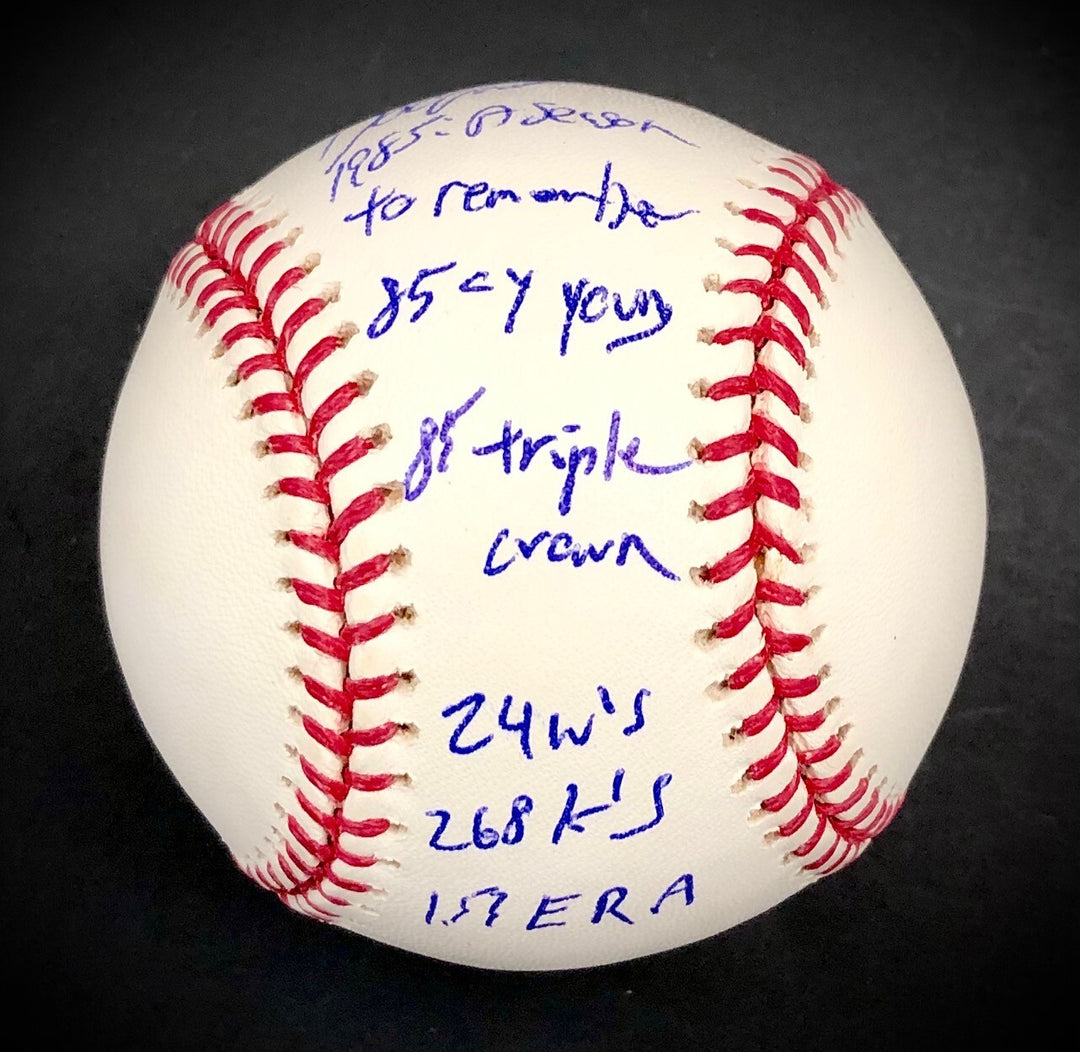 1985: A Season
to remember
85 CY young
85 triple
crown
24 W's
268 K'S
1.53 ERA